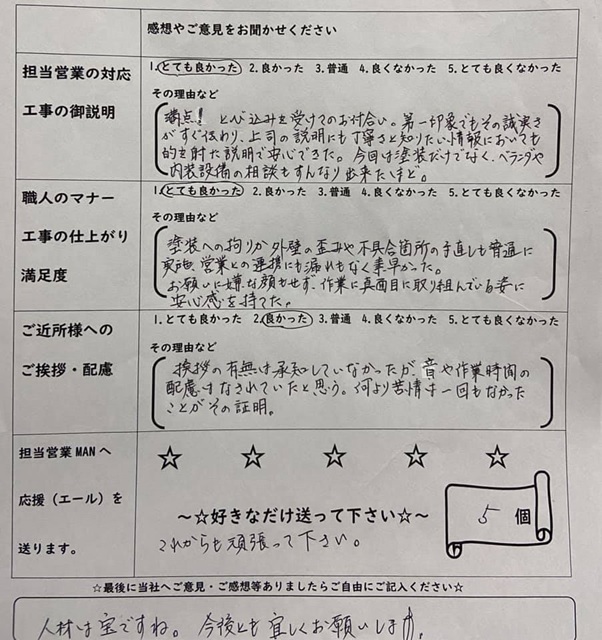 感想やご意見をお聞かせください
担当営業の対応
工事の御説明
1.とても良かった 2.良かった 3.普通 4.良くなかった 5.とても良くなかった
その理由など
満点! とび込みを受けてのお付合い。第一印象でもその誠実さ
がすぐ伝わり、上司の説明にも丁寧さと知りたい情報においても
的を射た説明で安心できた。今回は塗装だけでなく、ベランダや
内装設備の相談もすんなり出来たほど。
職人のマナー
工事の仕上がり
満足度
1.とても良かった 2.良かった 3.普通 4.良くなかった 5.とても良くなかった
その理由など
塗装への拘りが外壁の歪みや不具合箇所の手直しも普通に
実施、営業との連携にも漏れもなく素早かった。
お願いに嫌な顔もせず、作業に真面目に取り組んでいる姿に
安心感を持てた。
ご近所様への
ご挨拶・配慮
1.とても良かった 2.良かった 3.普通 4.良くなかった 5.とても良くなかった
その理由など
挨拶の有無は承知していなかったが、音や作業時間の
配慮はなされていたと思う。何より苦情は一回もなかった
ことがその証明。
担当営業MANへ
応援(エール)を
送ります。
☆ ☆ ☆ ☆ ☆
~☆好きなだけ送って下さい☆~
5 個
これからも頑張って下さい。
☆最後に当社へご意見・ご感想等ありましたらご自由にご記入ください☆
人材は宝ですね。今後とも宜しくお願いします。